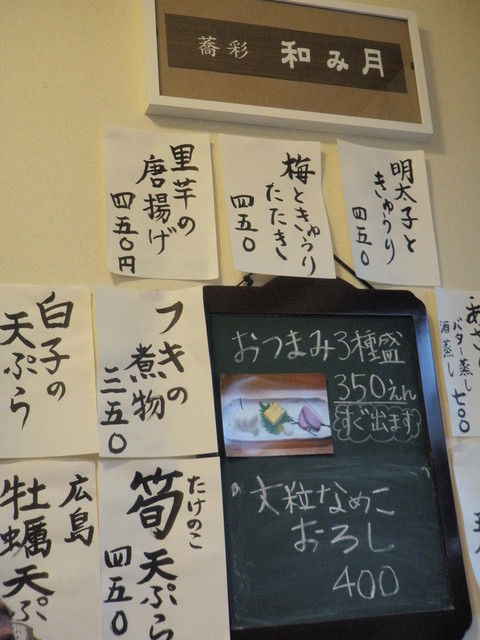 蕎彩 和み月
明太子と
きゅうり
四五〇
梅ときゅうり
たたき
四五〇
里芋の
唐揚げ
四五〇円
おつまみ3種盛
350えん
すぐ出ます
大粒なめこ
おろし
400
フキの
煮物
三五〇
白子の
天ぷら
あさり
バター蒸し
酒蒸し
七〇〇
たけのこ
筍天ぷら
四五〇
広島
牡蠣天ぷ